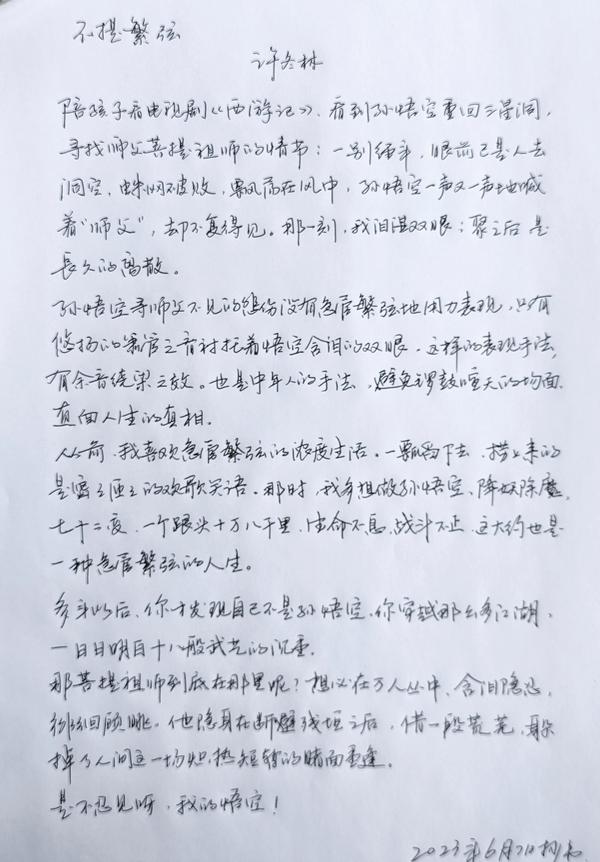 不提繁弦
许冬林
陪孩子看电视剧《西游记》、看到孙悟空重回三星洞,
寻找师父菩提祖师的情节:一别经年,眼前已是人去
洞空,蛛网破败,飘荡在风中,孙悟空一声又一声地喊
着“师父”,却不复得见。那一刻,我泪湿双眼:聚之后是
長久的离散。
孙悟空寻师父不见的悲伤没有急管繁弦地用力表现,只有
悠扬的箫管之音衬托着悟空含泪的双眼,这样的表现手法,
有余音绕梁之效。也是中年人的手法,避免锣鼓喧天的场面
直面人生的真相.
从前,我喜欢急管繁弦的浓度生活。一瓢舀下去,捞上来的
是密密匝匝的欢歌笑语。那时,我多想做孙悟空、降妖除魔,
七十二变,一个跟头十万八千里,生命不息,战斗不止,这大约也是
一种急管繁弦的人生。
多年以后、你才发现自己不是孙悟空.你穿越那么多江湖,
一日日明白十八般武艺的沉重.
那菩提祖师到底在哪里呢?想必在万人丛中、含泪隐忍,
频频回顾眺。他隐身在断壁残垣之后,借一段荒芜,躲
掉了人间这一场炽热短暂的晤面重逢。
是不忍见呀,我的悟空!
2023年6月7日